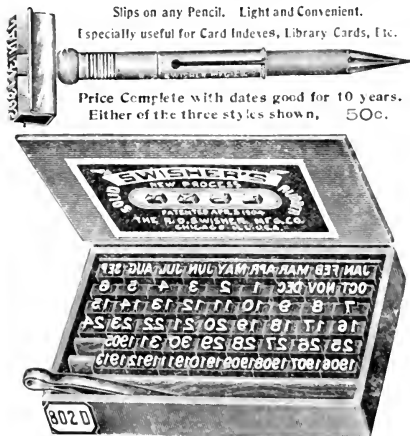 Slips on any Pencil. Light and Convenient.
Especially useful for Card Indexes, Library Cards, Etc.
R.D. SWISHER MFG. CO.
Price Complete with dates good for 10 years.
Either of the three styles shown, 50c.
SWISHER'S
NEW PROCESS
SOLID RUBBER
PATENTED APR. 5 1904
THE R.D. SWISHER MFG. CO.
CHICAGO ILL. U.S.A.
JAN FEB MAR APR MAY JUN JUL AUG SEP
OCT NOV DEC 1 2 3 4 5 6
7 8 9 10 11 12 13 14 15
16 17 18 19 20 21 22 23 24
25 26 27 28 29 30 31 1905
1906 1907 1908 1909 1910 1911 1912 1913
802D